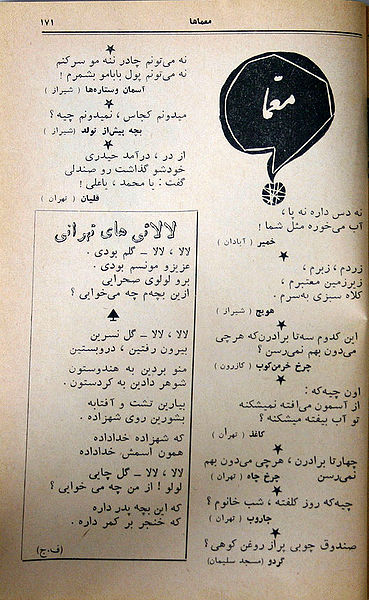 معماها
۱۷۱
معمّا
نه دس داره نه پا ،
آب می‌خوره مثل شما !
خمیر ( آبادان )
زردم ، زبرم ،
زیرزمین معتبرم ،
کلاه سبزی به‌سرم .
هویج ( شیراز )
این کدوم سه‌تا برادرن‌که هرچی
می‌دون بهم نمی‌رسن ؟
چرخ خرمن‌کوب ( کازرون )
اون چیه‌که :
از آسمون می‌افته نمیشکنه
تو آب بیفته میشکنه ؟
کاغذ ( تهران )
چهارتا برادرن ، هرچی می‌دون بهم
نمی‌رسن
چرخ چاه ( تهران )
چیه‌که روز کلفته ، شب خانوم ؟
جاروب ( تهران )
صندوق چوبی پراز روغن کوهی ؟
گردو ( مسجد سلیمان )
نه می‌تونم چادر ننه مو سرکنم
نه می‌تونم پول بابامو بشمرم !
آسمان وستاره‌ها ( شیراز )
میدونم کجاس ، نمیدونم چیه ؟
بچه پیش‌از تولد (شیراز )
از در ، درآمد حیدری
خودشو گذاشت رو صندلی
گفت : یا محمد ، یاعلی !
قلیان ( تهران )
لالائی های تهرانی
لالا ، لالا ــ گلم بودی .
عزیزو مونسم بودی .
برو لولوی صحرایی
ازین بچه‌م چه می‌خوایی ؟
لالا ، لالا ــ گل نسرین
بیرون رفتین ، دروبستین
منو بردین به هندوستون
شوهر دادین به کردستون .
بیارین تشت و آفتابه
بشورین روی شهزاده .
که شهزاده خداداده
همون اسمش خداداده
لالا ، لالا ــ گل چایی
لولو ! از من چه می خوایی ؟
که این بچه پدر داره
که خنجر بر کمر داره .
(ف.ج)